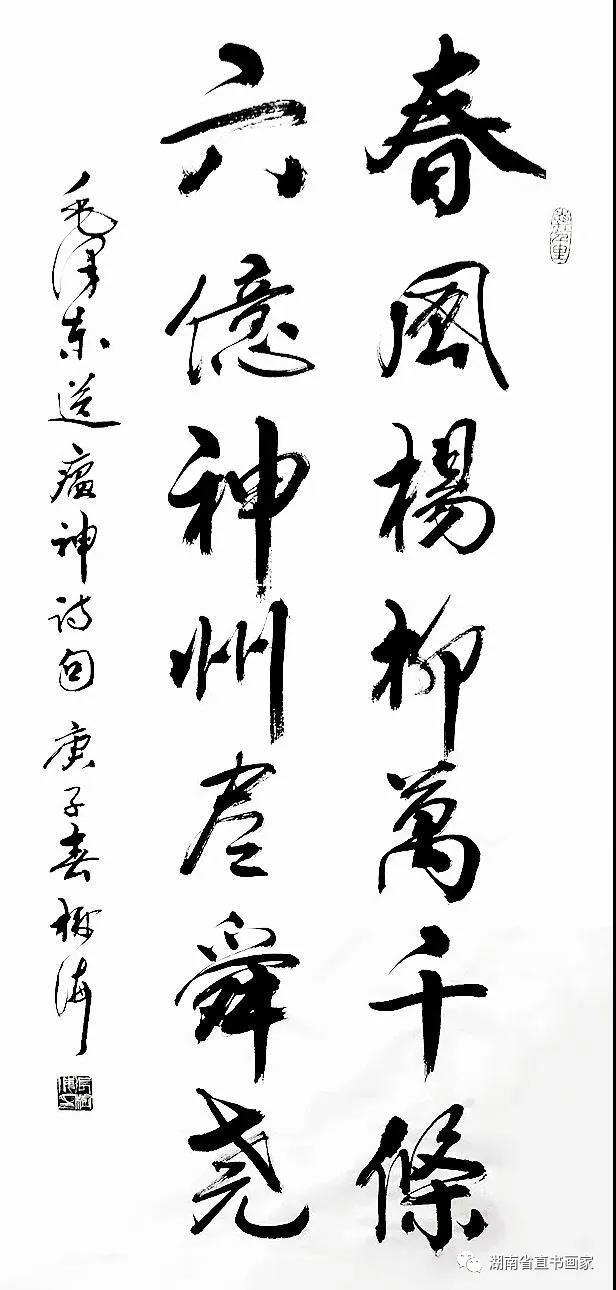 春風楊柳萬千條
六億神州尽舜尧
毛泽东送瘟神诗句 庚子春树海
湖南省直书画家